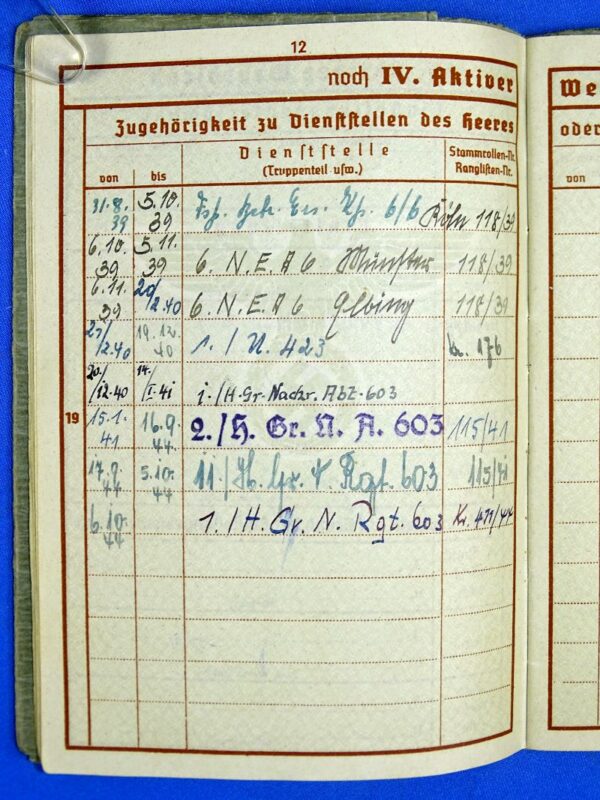 12
noch IV. Aktiver
Zugehörigkeit zu Dienststellen des Heeres
von bis Dienststelle (Truppenteil usw.) Stammrollen-Nr. Ranglisten-Nr.
31.8. 39 5.10. 39 6/6 Köln 118/39
6.10. 39 5.11. 39 6. N.E.A 6 Münster 118/39
6.11. 39 20/2.40 6. N.E.A 6 Elbing 118/39
21/2.40 19.12. 40 1./N. 423 176
20./12.40 14./I.41 1./H.Gr.Nachr.Abt.603
19
15.1. 41 16.9. 44 2./H. Gr. N. A. 603 115/41
17.9. 44 5.10. 44 11./H. Gr. N. Rgt. 603 115/41
6.10. 44 1./H. Gr. N. Rgt. 603 Kr. 471/44
We
oder
von